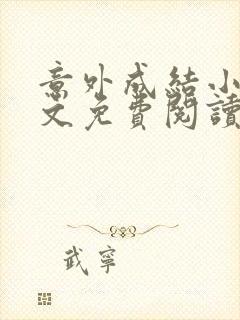 意外成結小
文免費閱讀
武寧